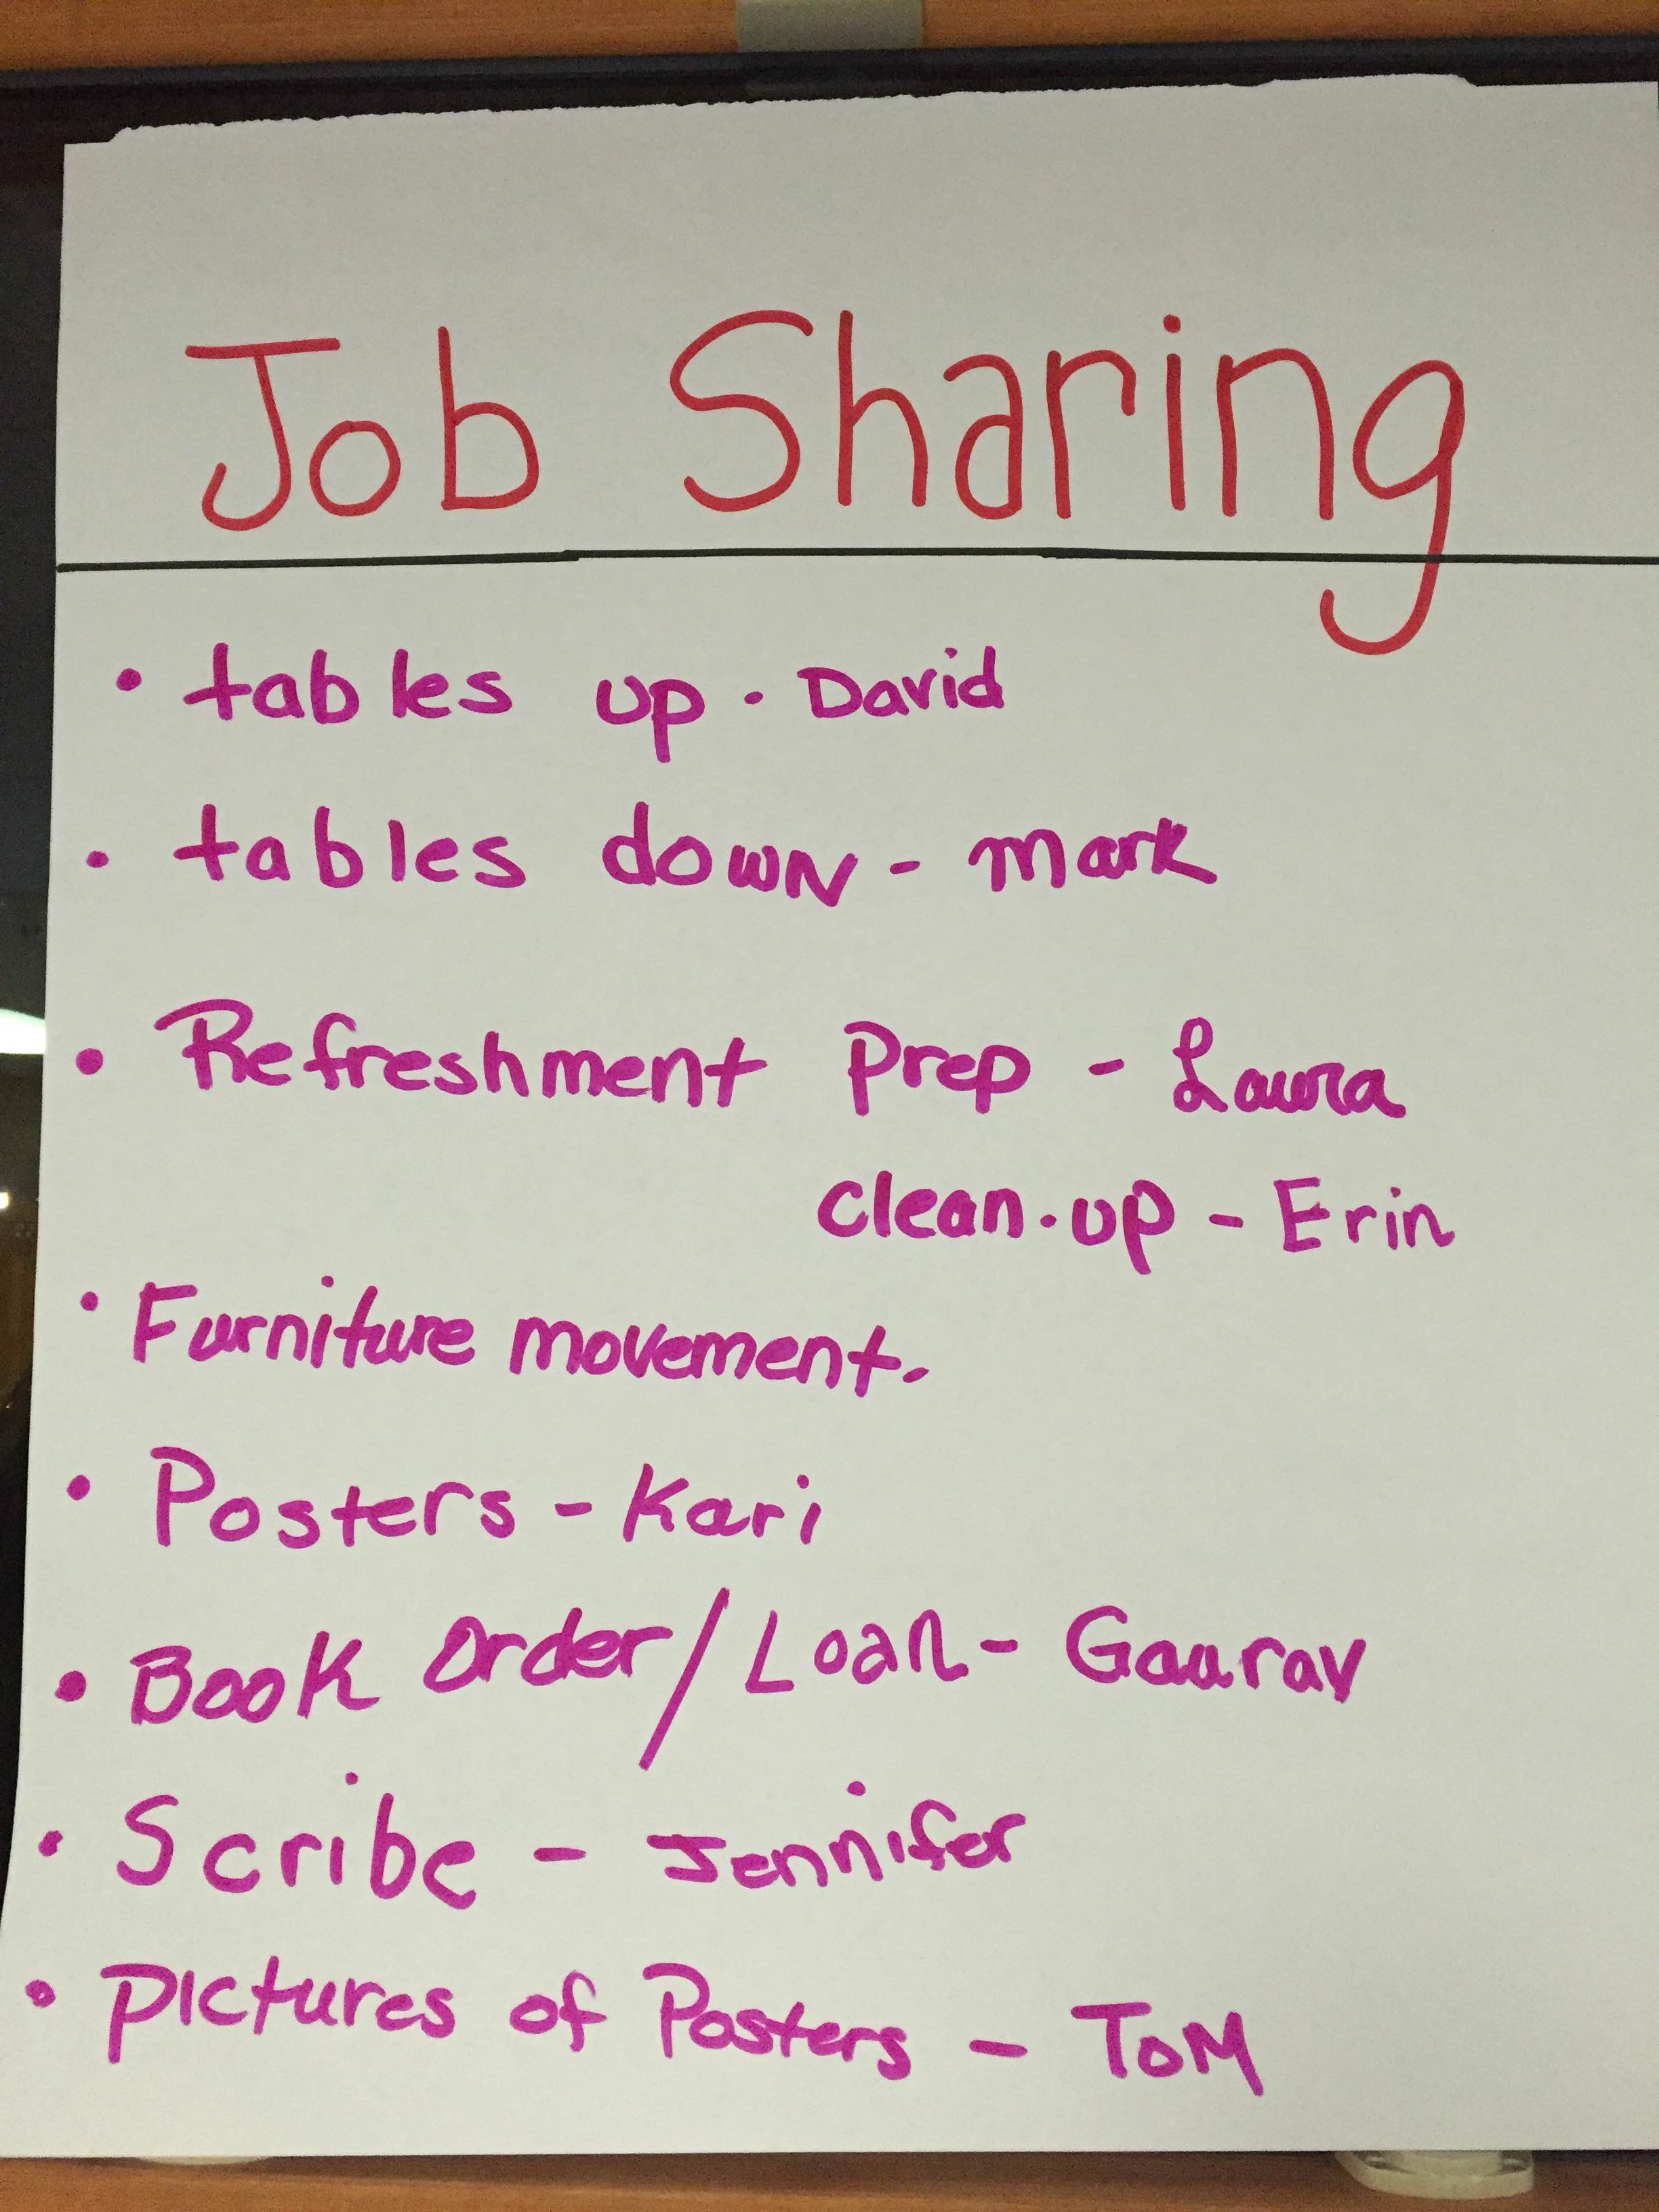 Job Sharing
• tables up - David
• tables down - Mark
• Refreshment Prep - Laura
clean-up - Erin
• Furniture movement -
• Posters - Kari
• Book Order / Loan - Gaurav
• Scribe - Jennifer
• Pictures of Posters - Tom